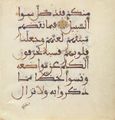 منكم فقد ضل سواء
السبيل فبما نقضهم
ميثقهم لعنهم وجعلنا
قلوبهم قسية يحرفون
الكلم عن مواضعه
ونسوا حظا مما
ذكروا به ولا تزال